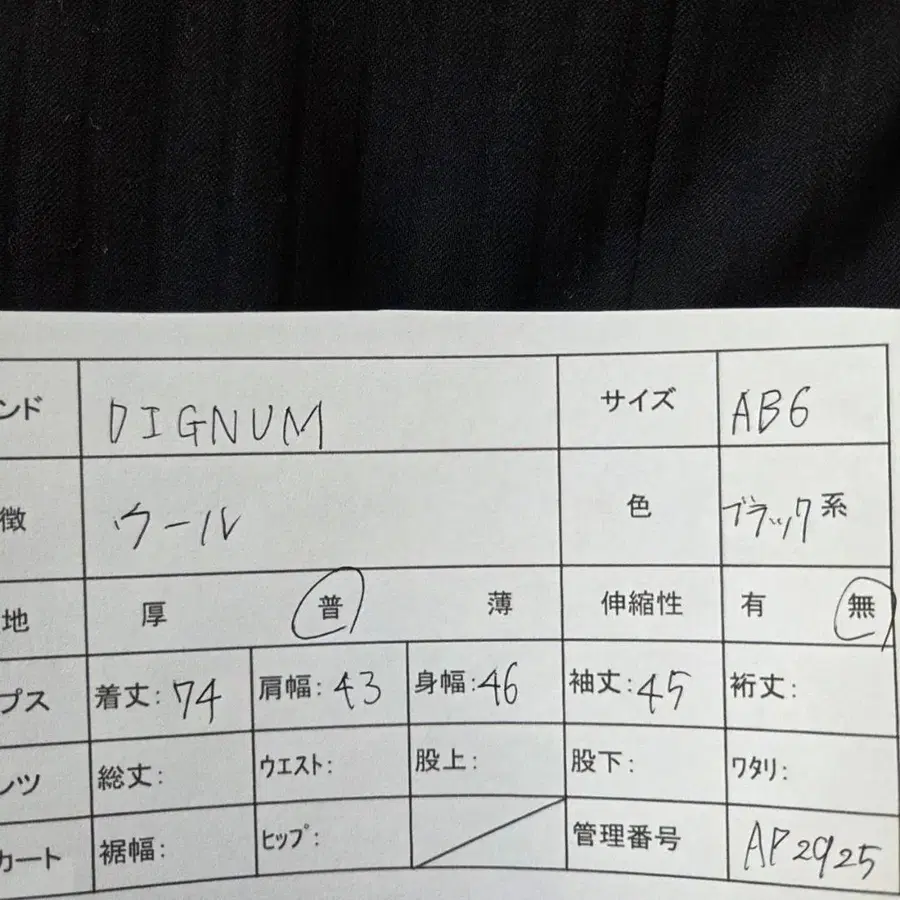 ンド DIGNUM サイズ AB6
徴 ウール 色 ブラック系
地 厚 普 薄 伸縮性 有 無
プス 着丈: 74 肩幅: 43 身幅: 46 袖丈: 45 裄丈:
ンツ 総丈: ウエスト: 股上: 股下: ワタリ:
カート 裾幅: ヒップ: 管理番号 AP2925